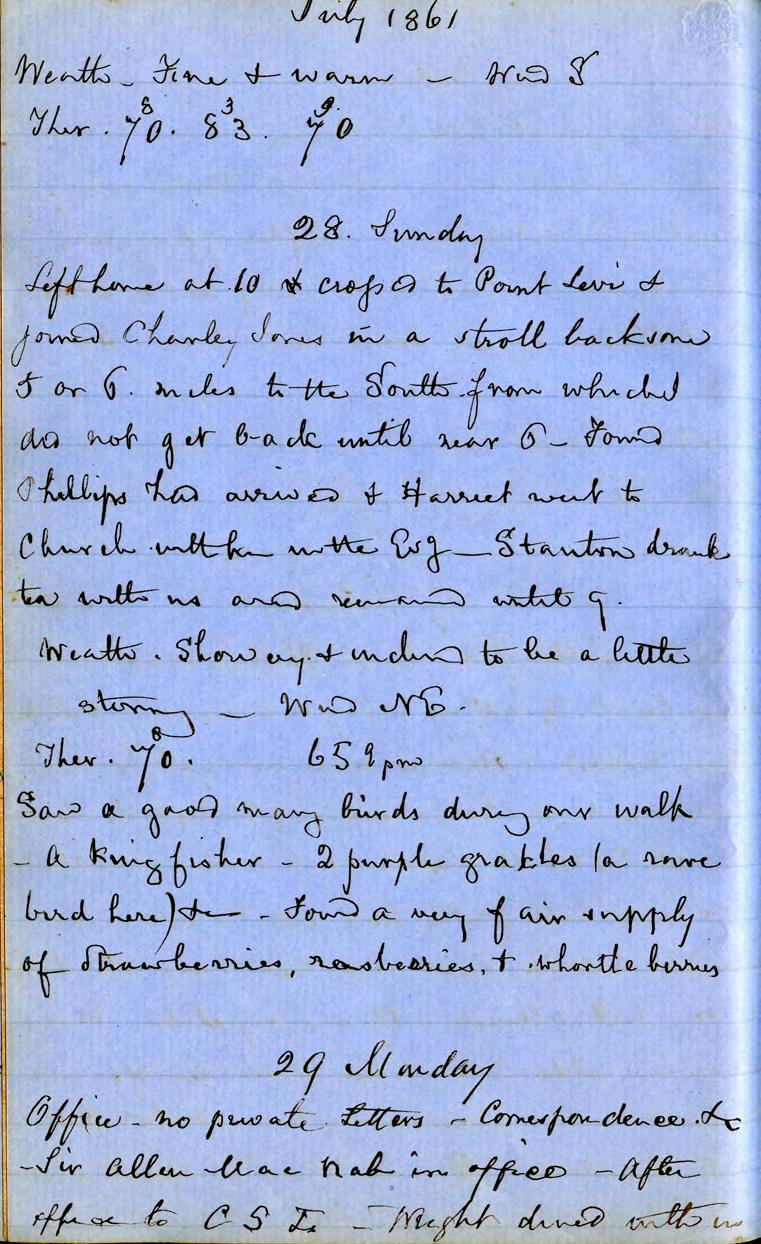 July 1861
Weath - Fine & warm - Wind S
8 3 9
Ther. 70. 83. 70
28. Sunday
Left home at 10 & crossed to Point Levi &
joined Charley Jones in a stroll back some
5 or 6. miles to the South from which I
did not get back until near 6 - Found
Phillips had arrived & Harriet went to
Church with him in the Evg - Stanton drank
tea with us and remained until 9.
Weath. Showery & inclined to be a little
stormy - Wind NE.
8
Ther. 70. 65 9 pm
Saw a good many birds during our walk
- A Kingfisher - 2 purple grakles (a rare
bird here) &c - Found a very fair supply
of Strawberries, rasberries, & whortle berries
29 Monday
Office - no private Letters - Correspondence &c
- Sir Allen Mac Nab in office - After
office to C S - Wright dined with us